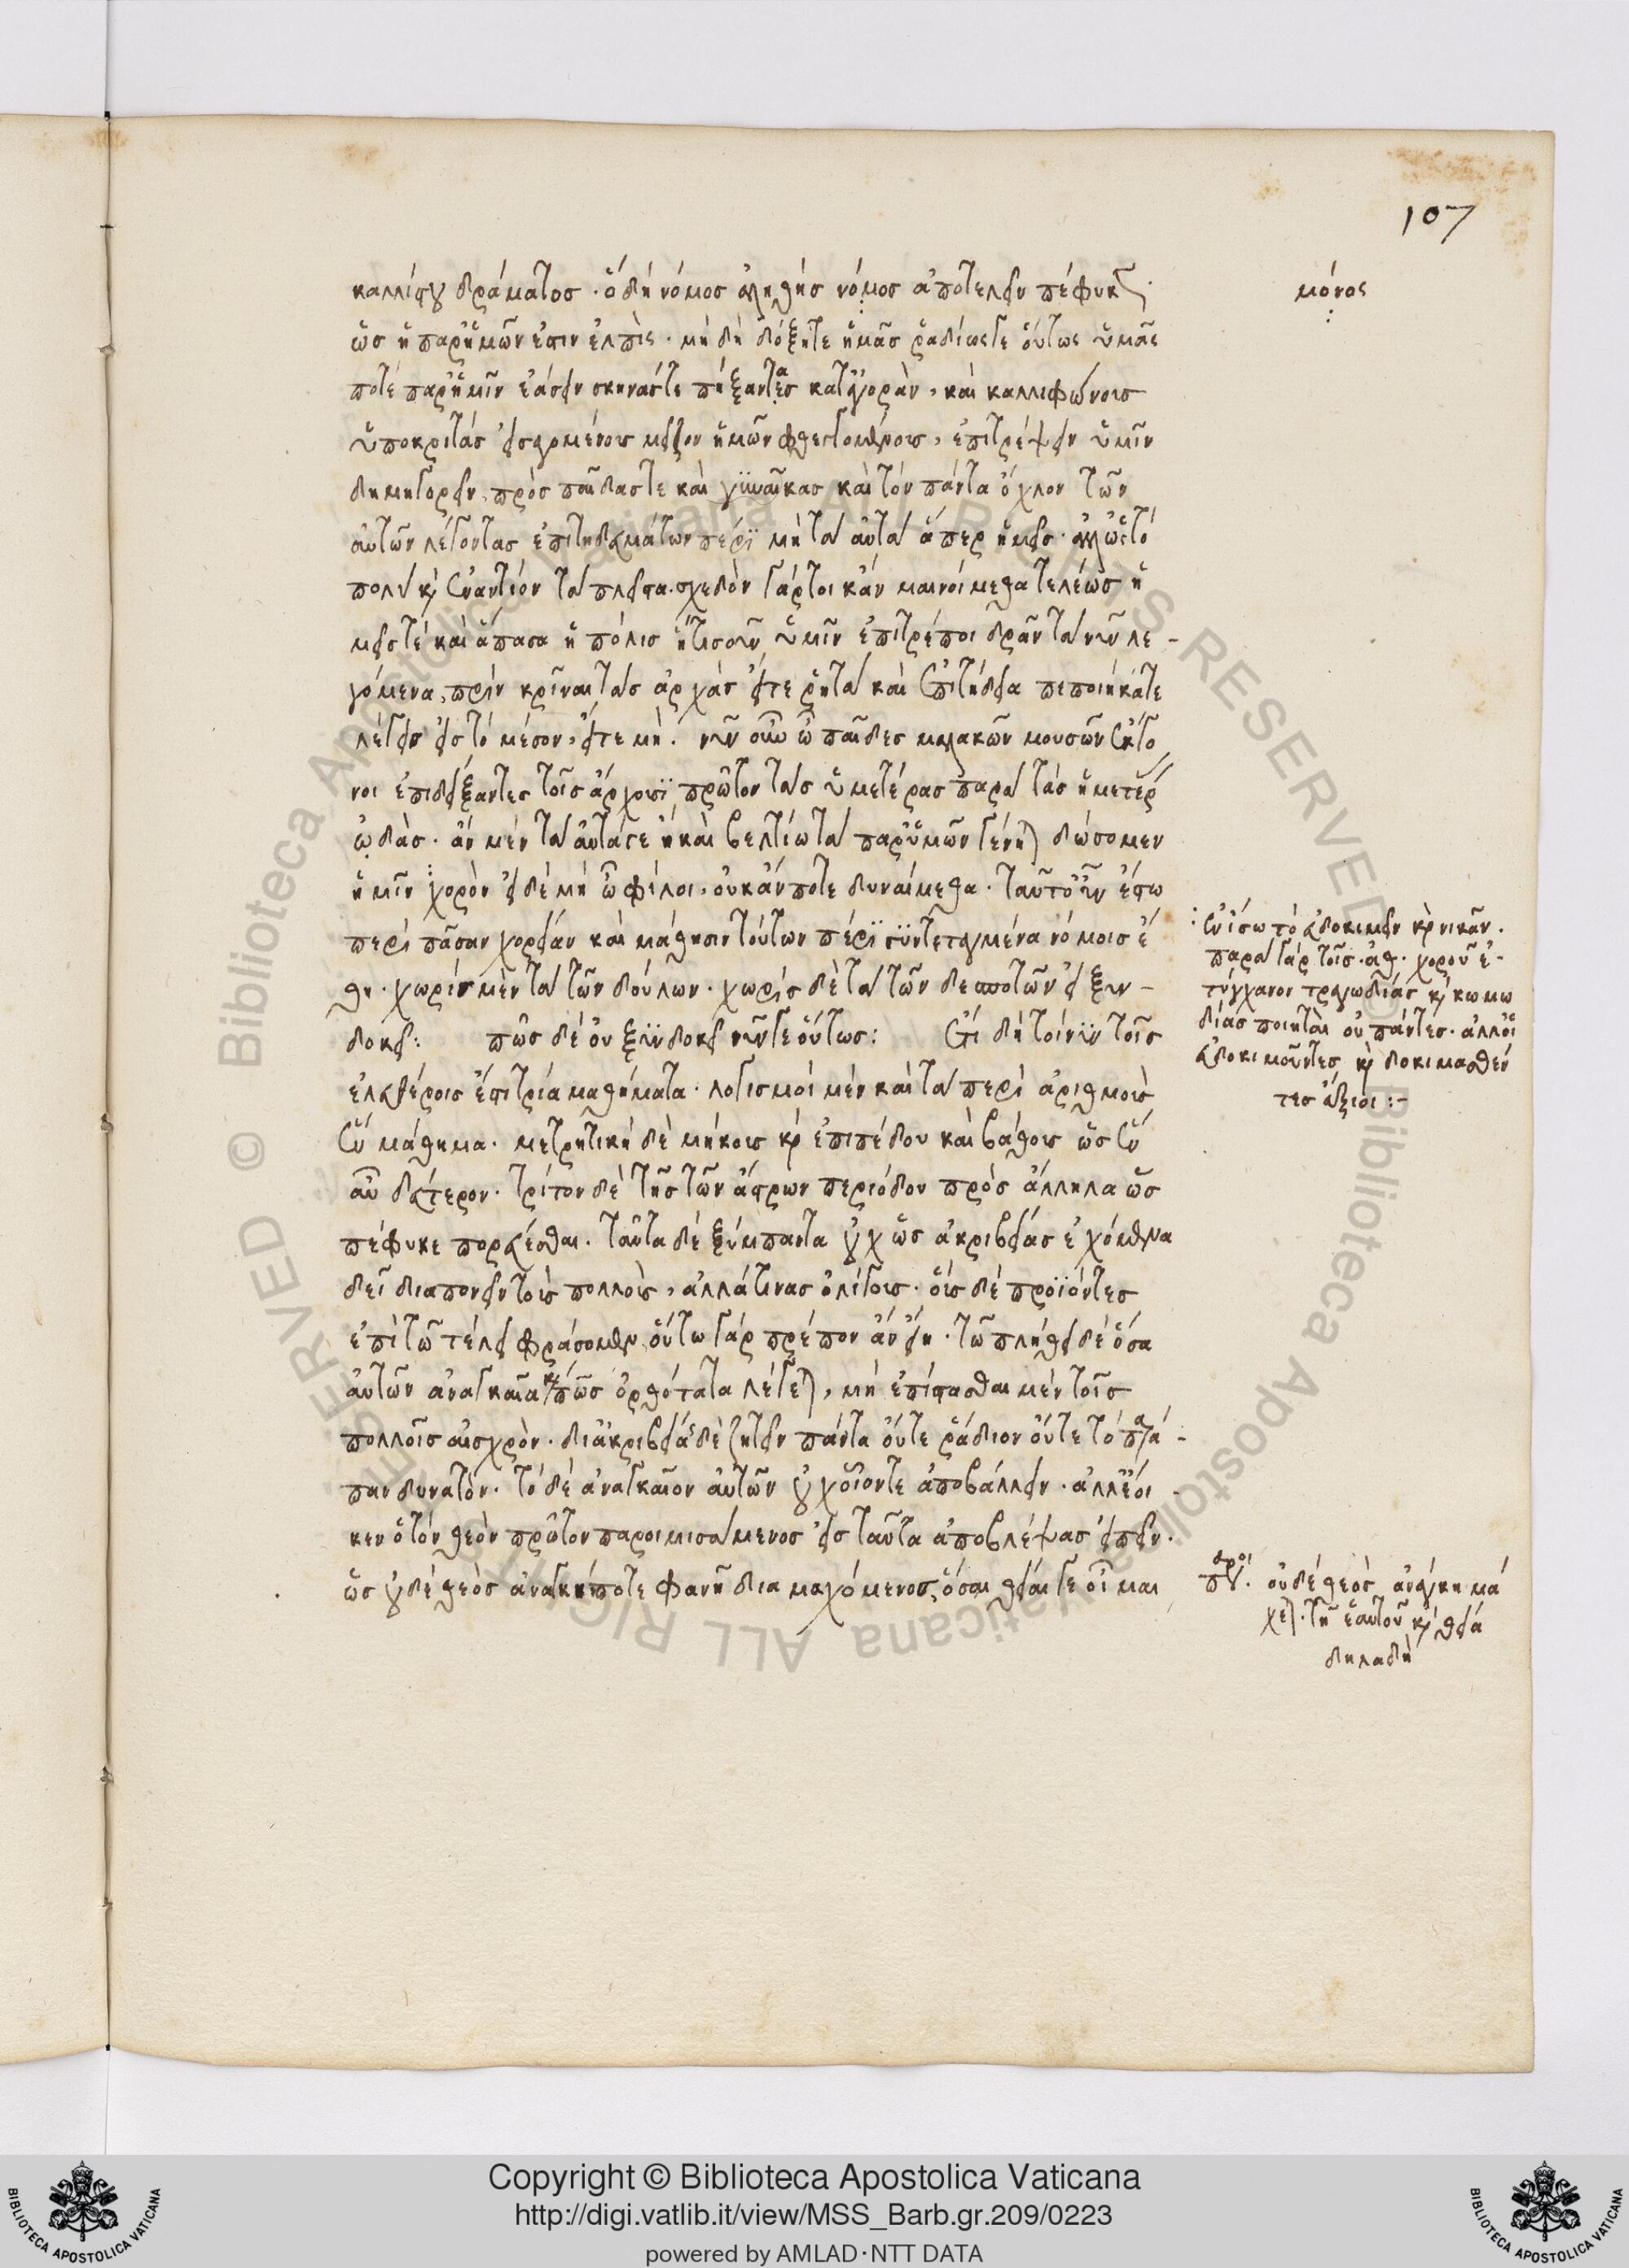 107
καλλίστου δράματος· ὃ δὴ νόμος ἀληθὴς νόμος ἀποτελεῖν πέφυκεν·
μόνος
ὡς ἡ παρ' ἡμῶν ἐστιν ἐλπίς· μὴ δὴ δόξητε ἡμᾶς ῥαδίως γε οὕτως ὑμᾶς
ποτὲ παρ' ἡμῖν ἐάσειν σκηνάς τε πήξαντες κατ' ἀγορὰν, καὶ καλλιφώνους
ὑποκριτὰς εἰσαγομένους μεῖζον ἡμῶν φθεγγομένους, ἐπιτρέψειν ὑμῖν
δημηγορεῖν, πρὸς παῖδάς τε καὶ γυναῖκας καὶ τὸν πάντα ὄχλον τῶν
αὐτῶν λέγοντας ἐπιτηδευμάτων πέρι μὴ τὰ αὐτὰ ἅπερ ἡμεῖς· ἀλλ' ὡς τὸ
πολὺ καὶ ἐναντίον τὰ πλεῖστα. σχεδὸν γάρ τοι κἂν μαινοίμεθα τελέως ἡ
μεῖς τὲ καὶ ἅπασα ἡ πόλις ἥτις οὖν ὑμῖν ἐπιτρέποι δρᾶν τὰ νῦν λε-
γόμενα, πρὶν κρῖναι τὰς ἀρχὰς εἴτε ῥητὰ καὶ ἐπιτήδεια πεποιήκατε
λέγειν εἰς τὸ μέσον, εἴτε μή. νῦν οὖν ὦ παῖδες μαλακῶν μουσῶν ἔκγο
νοι ἐπιδείξαντες τοῖς ἄρχουσι πρῶτον τὰς ὑμετέρας παρὰ τὰς ἡμετέρας
ᾠδὰς· ἂν μὲν τὰ αὐτά γε ἢ καὶ βελτίω τὰ παρ' ὑμῶν γένηται δώσομεν
ἡμῖν χορὸν εἰ δὲ μὴ ὦ φίλοι, οὐκ ἄν ποτε δυναίμεθα. ταῦτ' οὖν ἔστω
περὶ πᾶσαν χορείαν καὶ μάθησιν τούτων πέρι συντεταγμένα νόμοις ἔ
θη· χωρὶς μὲν τὰ τῶν δούλων· χωρὶς δὲ τὰ τῶν δεσποτῶν εἰ ξυν-
δοκεῖ: πῶς δὲ οὐ ξυνδοκεῖ νῦν γε οὕτως: ἔτι δὴ τοίνυν τοῖς
ἐλευθέροις ἔστι τρία μαθήματα· λογισμοὶ μὲν καὶ τὰ περὶ ἀριθμοὺς
ἓν μάθημα. μετρητικὴ δὲ μήκους καὶ ἐπιπέδου καὶ βάθους ὡς ἓν
αὖ δεύτερον· τρίτον δὲ τῆς τῶν ἄστρων περιόδου πρὸς ἄλληλα ὡς
πέφυκε πορεύεσθαι. ταῦτα δὲ ξύμπαντα οὐχ ὡς ἀκριβείας ἐχόμενα
δεῖ διαπονεῖν τοὺς πολλοὺς, ἀλλά τινας ὀλίγους· οὓς δὲ προϊόντες
ἐπὶ τῷ τέλει φράσομεν οὕτω γὰρ πρέπον ἂν εἴη· τῷ πλήθει δὲ ὅσα
αὐτῶν ἀναγκαῖα καὶ πῶς ὀρθότατα λέγεται, μὴ ἐπίστασθαι μὲν τοῖς
πολλοῖς αἰσχρὸν· δι' ἀκριβείας δὲ ζητεῖν πάντα οὔτε ῥάδιον οὔτε τὸ παρά-
παν δυνατόν· τὸ δὲ ἀναγκαῖον αὐτῶν οὐχ οἷόν τε ἀποβάλλειν· ἀλλ' ἔοι-
κεν ὁ τὸν θεὸν πρῶτον παροιμιασάμενος εἰς ταῦτα ἀποβλέψας εἰπεῖν·
ὡς οὐδὲ θεὸς ἀνάγκῃ ποτὲ φανῇ διαμαχόμενος, ὅσαι θεῖαί γε οἶμαι
ἐν ἴσῳ τὸ εὐδοκιμεῖν καὶ νικᾶν.
παρὰ γὰρ τοῖς ἀθ. χοροῦ ἐ-
τύγχανον τραγωδίας καὶ κωμω
δίας ποιηταὶ οὐ πάντες· ἀλλ' οἱ
εὐδοκιμοῦντες καὶ δοκιμασθέν
τες ἄξιοι :-
οὐδὲ θεὸς ἀνάγκῃ μά
χεται· τῇ ἑαυτοῦ καὶ θείᾳ
δηλαδὴ
© Biblioteca Apostolica Vaticana ALL RIGHTS RESERVED
Copyright © Biblioteca Apostolica Vaticana
http://digi.vatlib.it/view/MSS_Barb.gr.209/0223
powered by AMLAD·NTT DATA
BIBLIOTECA APOSTOLICA VATICANA
BIBLIOTECA APOSTOLICA VATICANA